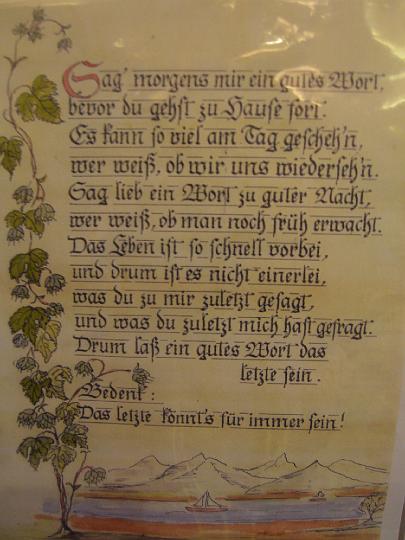 Sag' morgens mir ein gutes Wort,
bevor du gehst zu Hause fort.
Es kann so viel am Tag gescheh'n,
wer weiß, ob wir uns wiederseh'n.
Sag lieb ein Wort zu guter Nacht,
wer weiß, ob man noch früh erwacht.
Das Leben ist so schnell vorbei,
und drum ist es nicht einerlei,
was du zu mir zuletzt gesagt,
und was du zuletzt mich hast gefragt.
Drum laß ein gutes Wort das
letzte sein.
Bedenk:
Das letzte könnt's für immer sein!